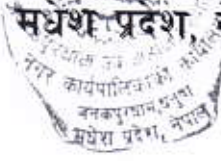 मधेश प्रदेश,
नगर कार्यपालिकाको कार्यालय
जनकपुरधाम, धनुषा
मधेश प्रदेश, नेपाल